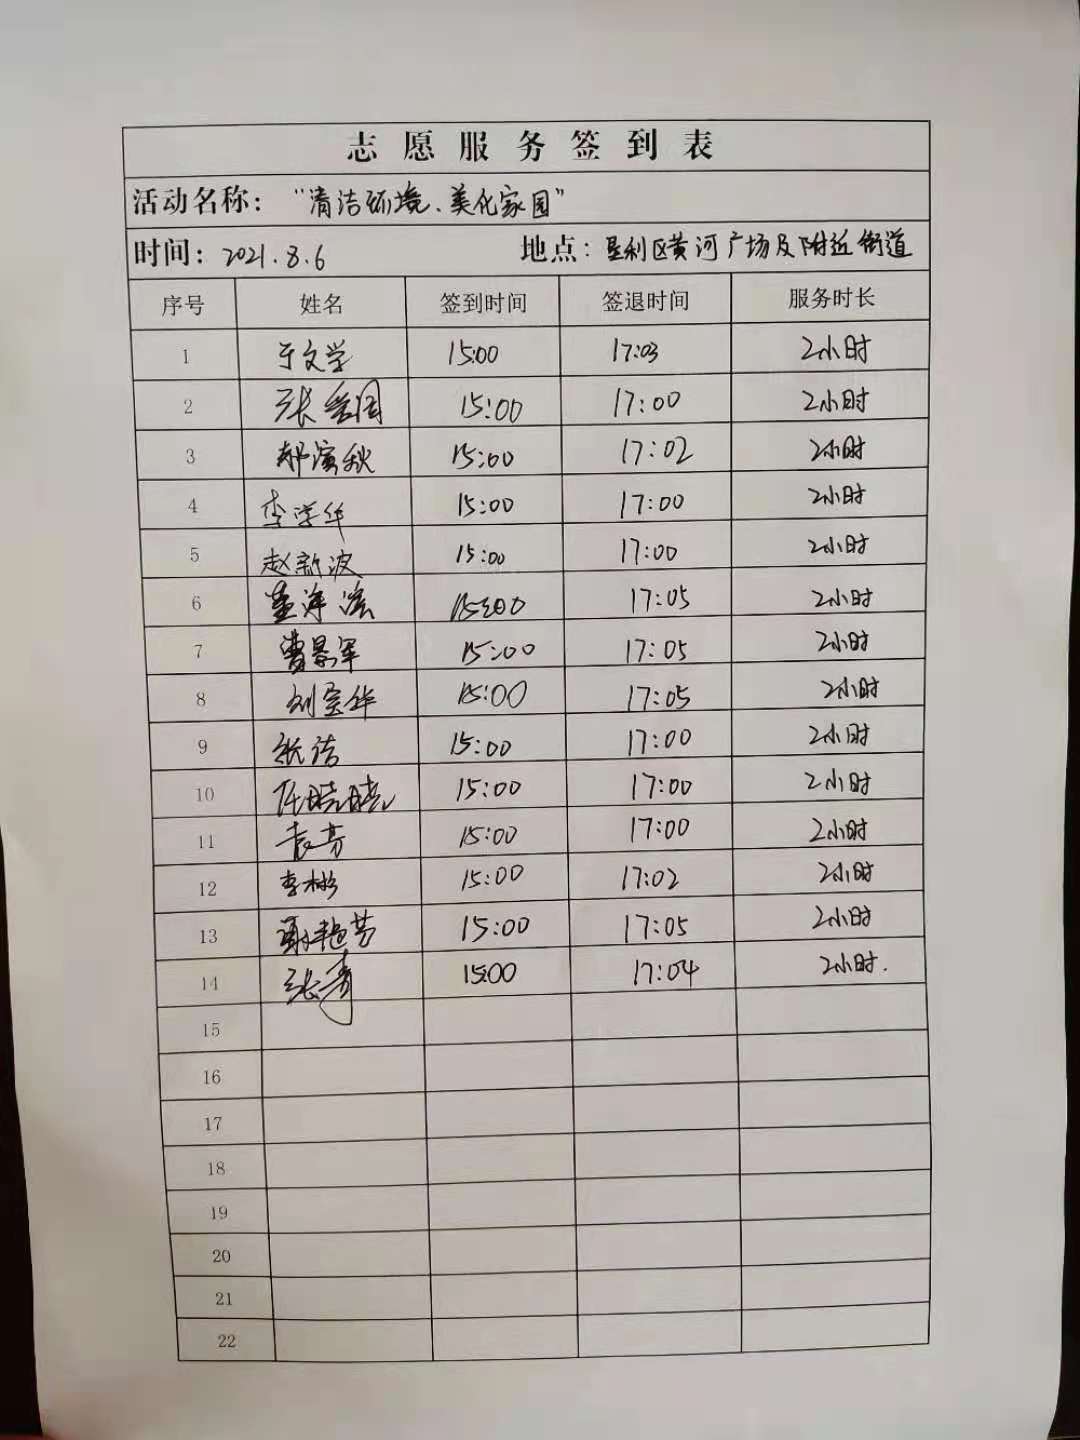 志愿服务签到表
活动名称："清洁环境、美化家园"
时间：2021.8.6 地点：垦利区黄河广场及附近街道
序号 姓名 签到时间 签退时间 服务时长
1 于文学 15:00 17:03 2小时
2 张 15:00 17:00 2小时
3 郝演秋 15:00 17:02 2小时
4 李学华 15:00 17:00 2小时
5 赵新波 15:00 17:00 2小时
6 董 15:00 17:05 2小时
7 曹景军 15:00 17:05 2小时
8 刘宝华 15:00 17:05 2小时
9 张洁 15:00 17:00 2小时
10 任晓晓 15:00 17:00 2小时
11 袁芳 15:00 17:00 2小时
12 李彬 15:00 17:02 2小时
13 艳芳 15:00 17:05 2小时
14 张青 15:00 17:04 2小时.
15
16
17
18
19
20
21
22